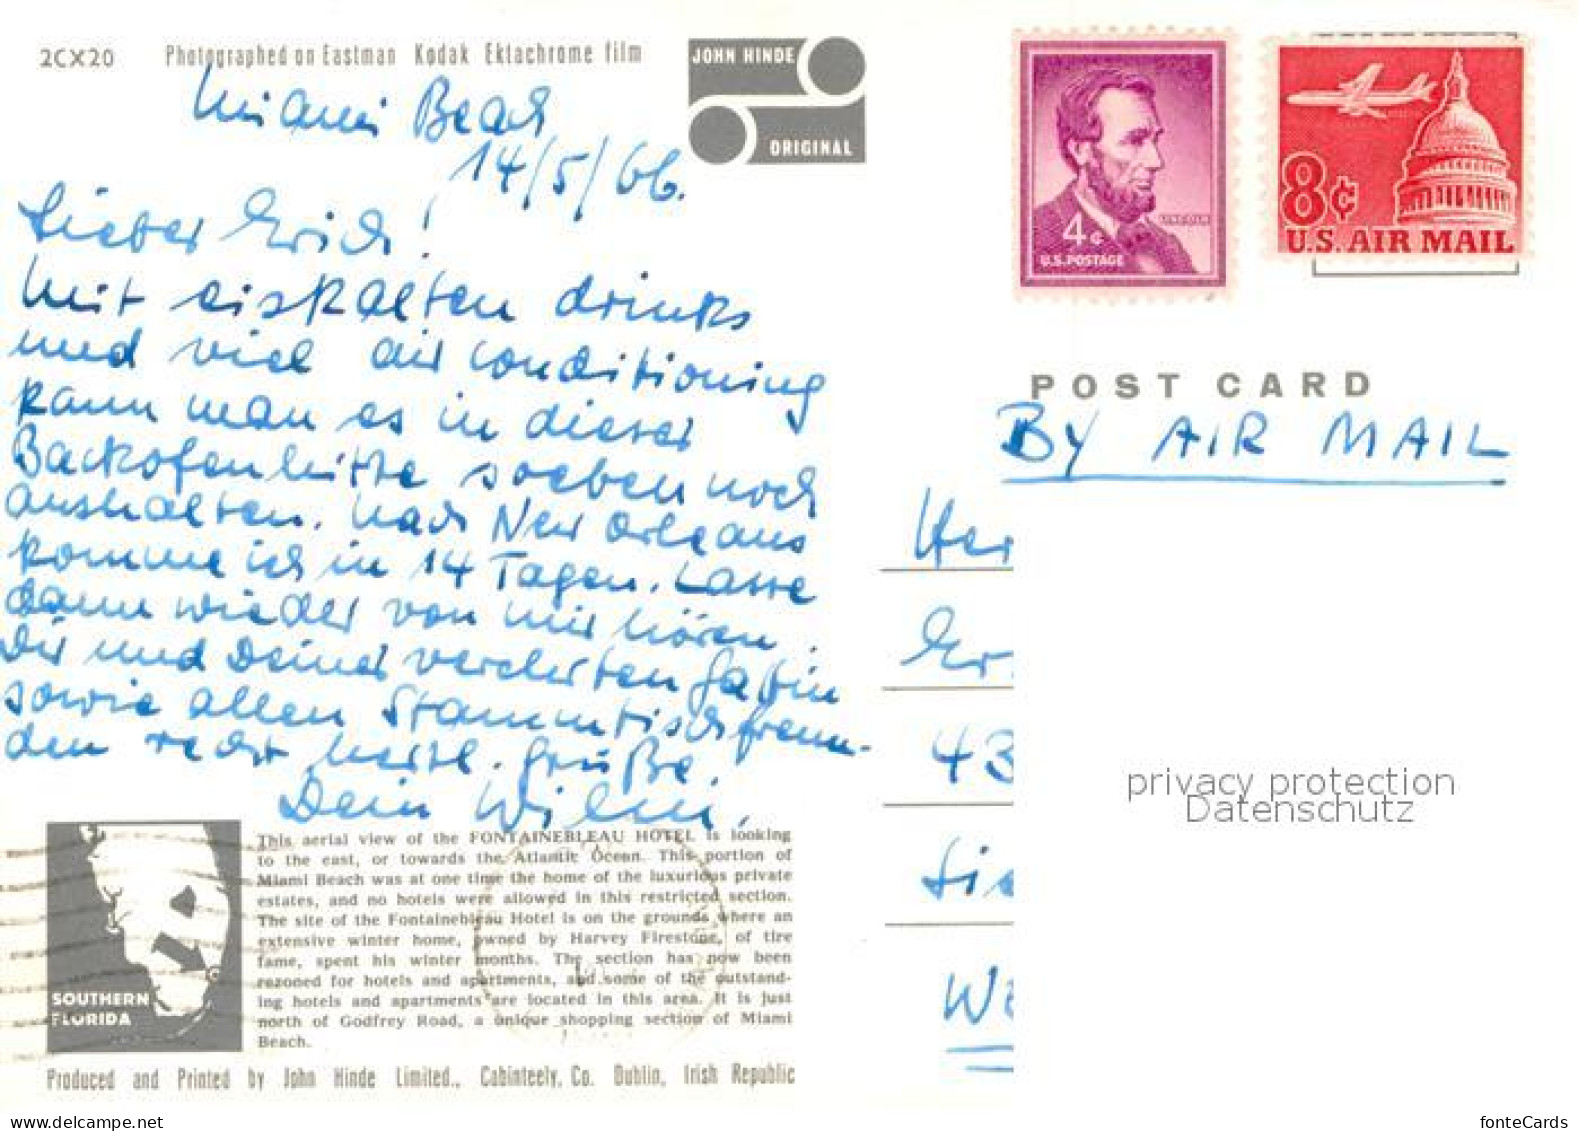 2CX20 Photographed on Eastman Kodak Ektachrome film
JOHN HINDE
ORIGINAL
Miami Beach
14/5/66.
Lieber Erich!
Mit eiskalten drinks
und viel air conditioning
kann man es in dieser
Backofenhitze soeben noch
aushalten. Nach New Orleans
komme ich in 14 Tagen. Lasse
dann wieder von mir hören.
Dir und Deiner verehrten Gattin
sowie allen Stammtischfreun-
den recht herzl. Grüße.
Dein Willi.
LINCOLN
4¢
U.S. POSTAGE
8¢
U.S. AIR MAIL
POST CARD
BY AIR MAIL
Her
Er
43
We
privacy protection
Datenschutz
SOUTHERN
FLORIDA
This aerial view of the FONTAINEBLEAU HOTEL is looking
to the east, or towards the Atlantic Ocean. This portion of
Miami Beach was at one time the home of the luxurious private
estates, and no hotels were allowed in this restricted section.
The site of the Fontainebleau Hotel is on the grounds where an
extensive winter home, owned by Harvey Firestone, of tire
fame, spent his winter months. The section has now been
rezoned for hotels and apartments, and some of the outstand-
ing hotels and apartments are located in this area. It is just
north of Godfrey Road, a unique shopping section of Miami
Beach.
Produced and Printed by John Hinde Limited., Cabinteely, Co. Dublin, Irish Republic
www.delcampe.net
fonteCards